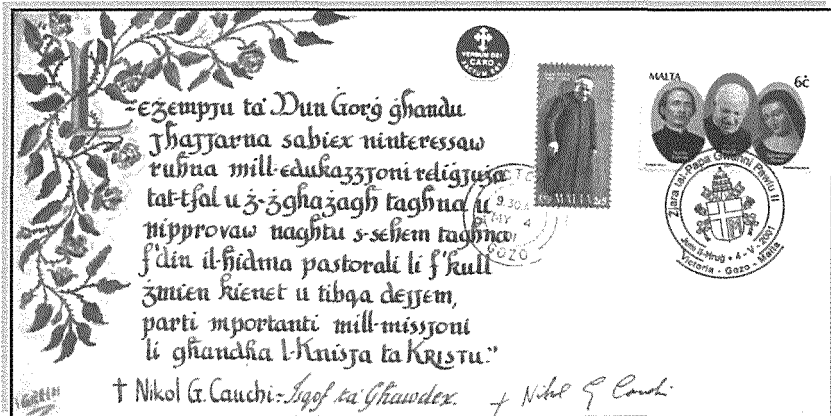 L-eżempju ta' Dun Ġorġ għandu
jħajjarna sabiex ninteressaw
ruħna mill-edukazzjoni reliġjuża
tat-tfal u ż-żgħażagħ tagħna u
nipprovaw nagħtu s-sehem tagħna
f'din il-ħidma pastorali li f'kull
żmien kienet u tibqa dejjem,
parti mportanti mill-missjoni
li għandha l-Knisja ta KRISTU."
† Nikol G. Cauchi:- Isqof ta' Għawdex. + Nikol G Cauchi
VERBUM DEI
CARO
FACTUM EST
MALTA 6ċ
9.30A
MY 4
01
GOZO
Żjara tal-Papa Ġwanni Pawlu II
Jum il-Ħruġ • 4-V-2001
Victoria - Gozo - Malta